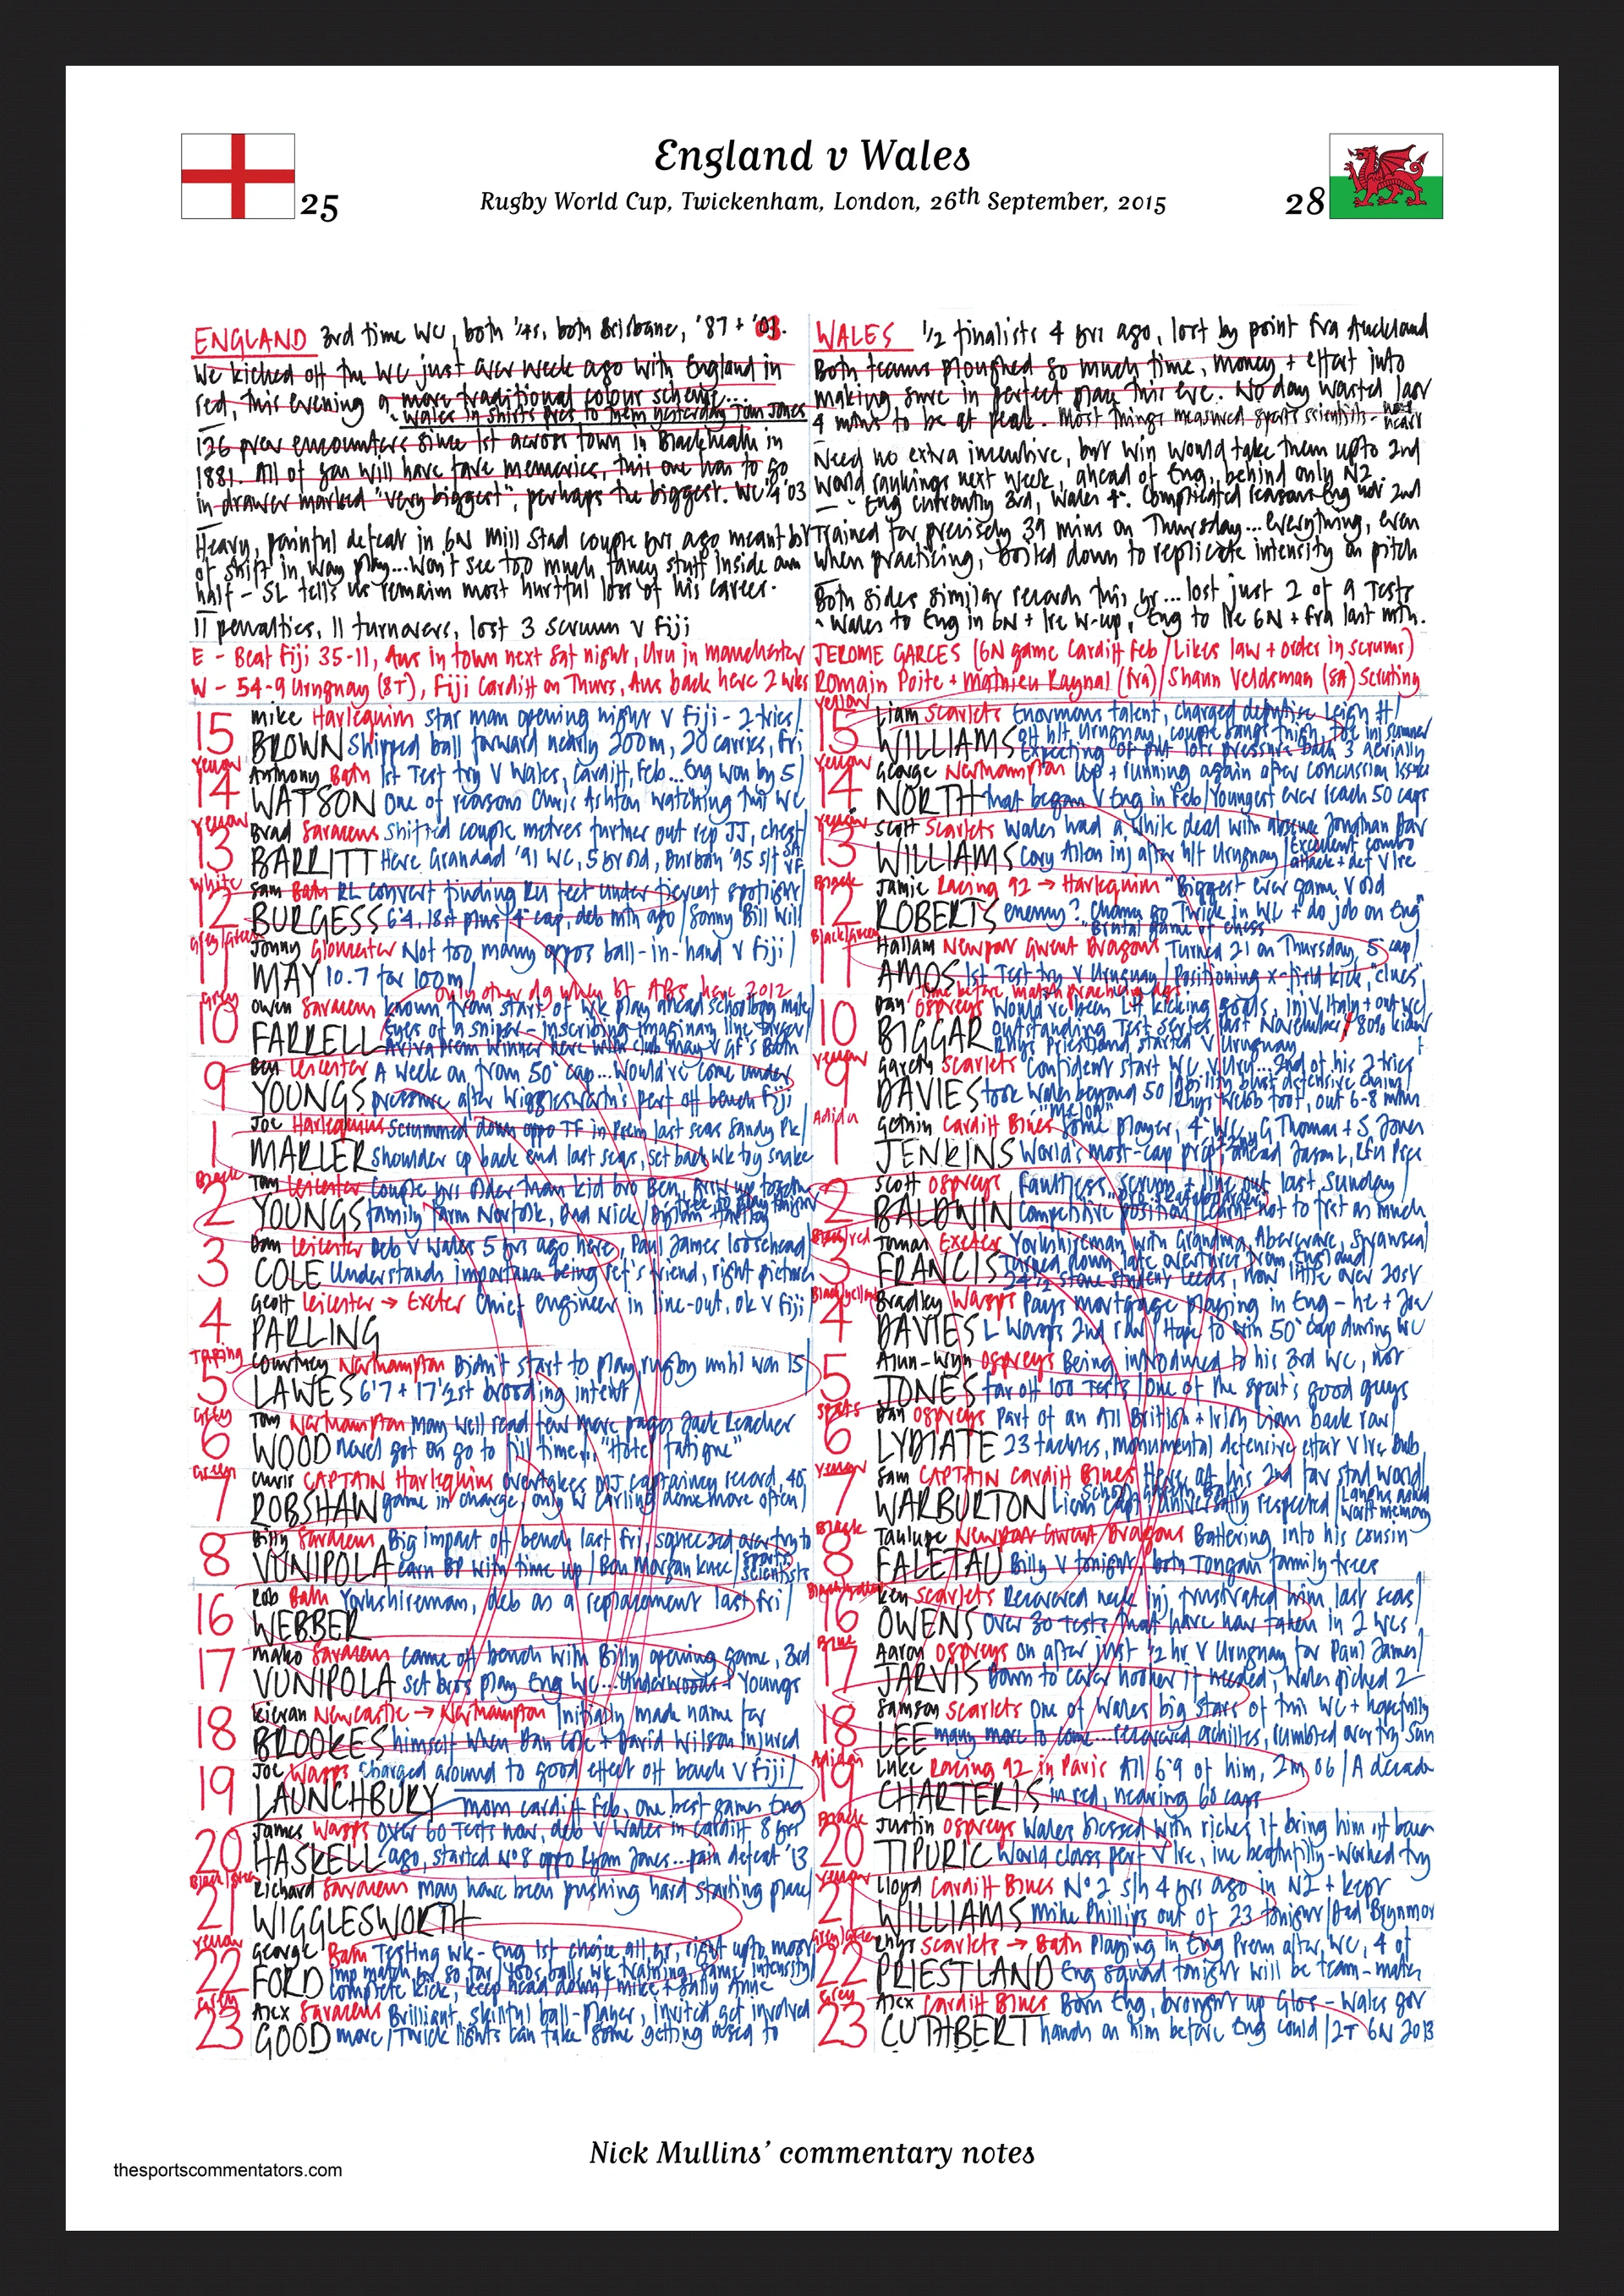 England v Wales
25
Rugby World Cup, Twickenham, London, 26th September, 2015
28
ENGLAND 3rd time WC, both ¼s, both Brisbane, '87 + '03.
We kicked off the WC just over week ago with England in
red, this evening a more traditional colour scheme...
- Wales in shirts pres to them yesterday Tom Jones
126 prev encounters since 1st across town in Blackheath in
1881. All of you will have fave memories, this one has to go
in drawer marked "very biggest", perhaps the biggest. WC ¼ '03
Heavy, painful defeat in 6N Mill Stad couple yrs ago meant bit
of shift in way play...Won't see too much fancy stuff inside own
half - SL tells us remain most hurtful loss of his career.
11 penalties, 11 turnovers, lost 3 scrum v Fiji
E - Beat Fiji 35-11, Aus in town next Sat night, Uru in Manchester
W - 54-9 Uruguay (8T), Fiji Cardiff on Thurs, Aus back here 2 wks
WALES ½ finalists 4 yrs ago, lost by point Fra Auckland
Both teams ploughed so much time, money + effort into
making sure in perfect place this eve. No day wasted last
4 mths to be at peak. Most things measured sports scientists -
Need no extra incentive, but win would take them upto 2nd
World rankings next week, ahead of Eng, behind only NZ.
- Eng currently 3rd, Wales 4th. Complicated reasons Eng not 2nd
Trained for precisely 39 mins on Thursday...everything, even
when practising, boiled down to replicate intensity on pitch
Both sides similar records this yr...lost just 2 of 9 Tests
- Wales to Eng in 6N + Ire w-up, Eng to Ire 6N + Fra last mth.
JEROME GARCES (6N game Cardiff Feb / Likes law + order in scrums)
Romain Poite + Mathieu Raynal (Fra) / Shaun Veldsman (SA) Scruting
15 Mike Harlequin star man opening night v Fiji - 2 tries/
BROWN Shipped ball forward nearly 200m, 20 carries, Fri
Yellow
14 Anthony Bath 1st Test try v Wales, Cardiff, Feb...Eng won by 5/
WATSON One of reasons Chris Ashton watching this WC
Yellow
13 Brad Saracens Shifted couple metres further out rep JJ, chest/
BARRITT Here Grandad '91 WC, 5 yr old, Durban '95 s/f
White
12 Sam Bath RL convert finding RU feet under fiercest spotlight
BURGESS 6'4, 18st plus/4th cap, deb mth ago/Sonny Bill Will
Grey/Green
11 Jonny Gloucester Not too many oppos ball-in-hand v Fiji/
MAY 10.7 for 100m/
Only other dg when bt ABs here 2012
Grey
10 Owen Saracens known from start of wk play ahead schoolboy mate
FARRELL Eyes of a sniper - inscribing imaginary line target
Aviva Prem winner here with club May v GF's Bath
9 Ben Leicester A week on from 50th cap...Would've come under
YOUNGS pressure after Wigglesworth's perf off bench Fiji
1 Joe Harlequins Scrummed down oppo TF in Prem last seas Sandy Pk/
MARLER shoulder op back end last seas, set back wk by snake
Black
2 Tom Leicester Couple yrs older than kid bro Ben, grew up together
YOUNGS family farm Norfolk, Dad Nick/
3 Dan Leicester Deb v Wales 5 yrs ago here, Paul James loosehead
COLE Understands importance being ref's friend, right pictures
4 Geoff Leicester → Exeter Chief engineer in line-out, ok v Fiji/
PARLING
Taping
5 Courtney Northampton Didn't start to play rugby until was 15/
LAWES 6'7 + 17½st brooding intent/
Grey
6 Tom Northampton May well read few more pages Jack Reacher
WOOD novel got on go to fill time... "Hotel fatigue"
Green
7 Chris CAPTAIN Harlequins overtakes MJ captaincy record, 40th
ROBSHAW game in charge, only W Carling done more often/
8 Billy Saracens Big impact off bench last Fri, squeezed over try to
VUNIPOLA earn BP with time up/Ben Morgan knee/sports scientists
16 Rob Bath Yorkshireman, deb as a replacement last Fri/
WEBBER
17 Mako Saracens came off bench with Billy opening game, 3rd
VUNIPOLA set bros play Eng WC...Underwoods + Youngs
18 Kieran Newcastle → Northampton Initially made name for
BROOKES himself when Dan Cole + David Wilson injured
19 Joe Wasps Charged around to good effect off bench v Fiji/
LAUNCHBURY mom Cardiff Feb, one best games Eng
20 James Wasps Over 60 Tests now, deb v Wales in Cardiff 8 yrs
HASKELL ago, started No8 oppo Ryan Jones...pain defeat '13
Black/Green
21 Richard Saracens may have been pushing hard starting place/
WIGGLESWORTH
Yellow
22 George Bath Testing wk - Eng 1st choice all yr, right upto most
FORD Imp match by so far/450s balls wk training, same intensity/
complete kick, keep head down/Mike + Sally Anne
Grey
23 Alex Saracens Brilliant, skilful ball-player, invited get involved
GOOD more/Twick lights can take some getting used to
Yellow
15 Liam Scarlets Enormous talent, charged deputise Leigh H/
WILLIAMS off h/t Uruguay, couple bangs thigh, toe inj summer
Expecting Eng put lots pressure back 3 aerially
Yellow
14 George Northampton Up + running again after concussion issues
NORTH that began v Eng in Feb/Youngest ever reach 50 caps
Yellow
13 Scott Scarlets Wales had a while deal with absence Jonathan Dav
WILLIAMS Cory Allen inj after h/t Uruguay/Excellent combo attack + def v Ire
Black
12 Jamie Racing 92 → Harlequin "Biggest ever game v old
ROBERTS enemy? Chance go Twick in WC + do job on Eng"
"Brutal game of chess"
Black/Green
11 Hallam Newport Gwent Dragons Turned 21 on Thursday, 5th cap/
AMOS 1st Test try v Uruguay/Positioning x-field kick, "clues"
Time before match practising dgs.
10 Dan Ospreys Would've been LH kicking goals, inj v Italy + out WC/
BIGGAR Outstanding Test series last November/80% kicker
Rhys Priestland started v Uruguay
Yellow
9 Gareth Scarlets Confident start WC v Uru...2nd of his 2 tries
DAVIES took Wales beyond 50/ability blast defensive chain/
Rhys Webb foot, out 6-8 mths
Adidas
"Melon"
1 Gethin Cardiff Blues Some player, 4th WC, G Thomas + S Jones
JENKINS World's most-cap prop, ahead Jason L, Eng Prce
2 Scott Ospreys Faultless scrum + line out last Sunday/
BALDWIN Competitive position/Learnt not to fret as much
3 Tomas Exeter Yorkshireman with Grandma, Abercrave, Swansea/
FRANCIS Turned down late overtures from England/
24½ stone student Leeds, now little over 20st
Black/yellow
4 Bradley Wasps Pays mortgage playing in Eng - he + Joe
DAVIES L Wasps 2nd row/Hope to win 50th cap during WC
5 Alun-Wyn Ospreys Being introduced to his 3rd WC, not
JONES far off 100 Tests/One of the sport's good guys
6 Dan Ospreys Part of an All British + Irish Lion back row/
LYDIATE 23 tackles, monumental defensive effort v Ire Dub
Yellow
7 Sam CAPTAIN Cardiff Blues Here at his 2nd fav stad world/
WARBURTON Lions capt, universally respected/
Black
8 Taulupe Newport Gwent Dragons Battering into his cousin
FALETAU Billy V tonight, both Tongan family trees
16 Ken Scarlets Recovered neck inj frustrated him last seas/
OWENS Over 30 Tests that have now taken in 2 WCs
Blue
17 Aaron Ospreys on after just ½ hr v Uruguay for Paul James/
JARVIS Down to cover hooker if needed, Wales picked 2
18 Samson Scarlets One of Wales big stars of this WC + hopefully
LEE many more to come...recovered achilles, rumbled over try Sun
Adidas
19 Luke Racing 92 in Paris All 6'9 of him, 2m 06/A decade
CHARTERIS in red, nearing 60 caps
Black
20 Justin Ospreys Wales blessed with riches if bring him off bench
TIPURIC World class perf v Ire, inc beautifully-worked try
Yellow
21 Lloyd Cardiff Blues No 2 s/h 4 yrs ago in NZ + kept
WILLIAMS Mike Phillips out of 23 tonight/Dad Brynmor
22 Rhys Scarlets → Bath Playing in Eng Prem after WC, 4 of
PRIESTLAND Eng squad tonight will be team-mates
Grey
23 Alex Cardiff Blues Born Eng, brought up Glos - Wales got
CUTHBERT hands on him before Eng could/2T 6N 2013
Nick Mullins' commentary notes
thesportscommentators.com